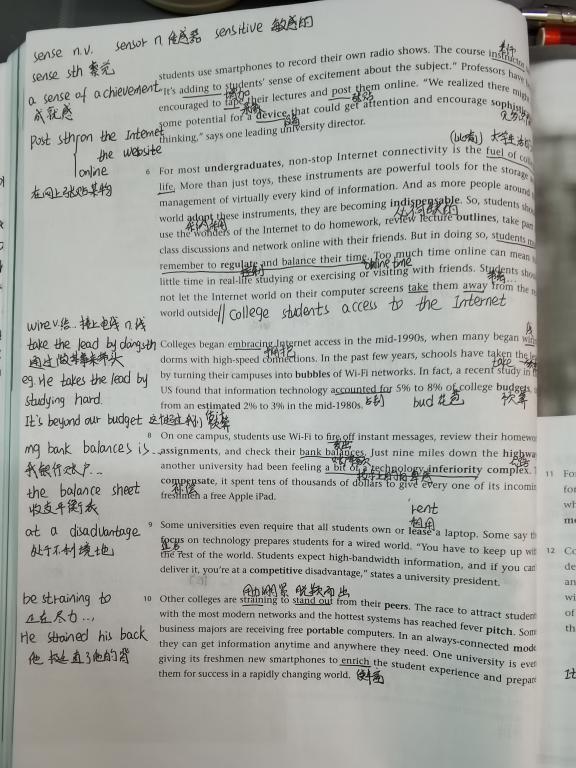 sense n.v. sensor n. 传感器 sensitive 敏感的
sense sth 察觉
a sense of achievement
成就感
post sth on the Internet
the website
online
在网上张贴某物
students use smartphones to record their own radio shows. The course instructor
"It's adding to students' sense of excitement about the subject." Professors have
增加
encouraged to tape their lectures and post them online. "We realized there might
录制 张贴
some potential for a device that could get attention and encourage
设备
thinking," says one leading university director.
大学生活
6 For most undergraduates, non-stop Internet connectivity is the fuel of
life. More than just toys, these instruments are powerful tools for the storage
management of virtually every kind of information. And as more people around
world adopt these instruments, they are becoming indispensable. So, students
采用
use the wonders of the Internet to do homework, review lecture outlines, take part
class discussions and network online with their friends. But in doing so, students
remember to regulate and balance their time. Too much time online can mean
控制 online time
little time in real-life studying or exercising or visiting with friends. Students
not let the Internet world on their computer screens take them away from the
world outside. // College students access to the Internet
wire v. 给..接上电线 n.线
take the lead by doing sth
通过做某事来带头
eg. He takes the lead by
studying hard.
It's beyond our budget 这超过我们预算
7 Colleges began embracing Internet access in the mid-1990s, when many began
拥抱
dorms with high-speed connections. In the past few years, schools have taken the
take
by turning their campuses into bubbles of Wi-Fi networks. In fact, a recent study in
US found that information technology accounted for 5% to 8% of college budgets,
from an estimated 2% to 3% in the mid-1980s.
占到 bud 花苞 预算
my bank balances is...
我银行账户...
the balance sheet
收支平衡表
at a disadvantage
处于不利境地
8 On one campus, students use Wi-Fi to fire off instant messages, review their homework
发出
assignments, and check their bank balances. Just nine miles down the
another university had been feeling a bit of a technology inferiority complex.
compensate, it spent tens of thousands of dollars to give every one of its
补偿
freshmen a free Apple iPad.
rent
租用
9 Some universities even require that all students own or lease a laptop. Some say
focus on technology prepares students for a wired world. "You have to keep up
the rest of the world. Students expect high-bandwidth information, and if you
deliver it, you're at a competitive disadvantage," states a university president.
be straining to
正在尽力...
He strained his back
他拉直了他的背
脱颖而出
10 Other colleges are straining to stand out from their peers. The race to attract
with the most modern networks and the hottest systems has reached fever pitch.
business majors are receiving free portable computers. In an always-connected
they can get information anytime and anywhere they need. One university is even
giving its freshmen new smartphones to enrich the student experience and prepare
them for success in a rapidly changing world.
11 Fo
12 Co
It